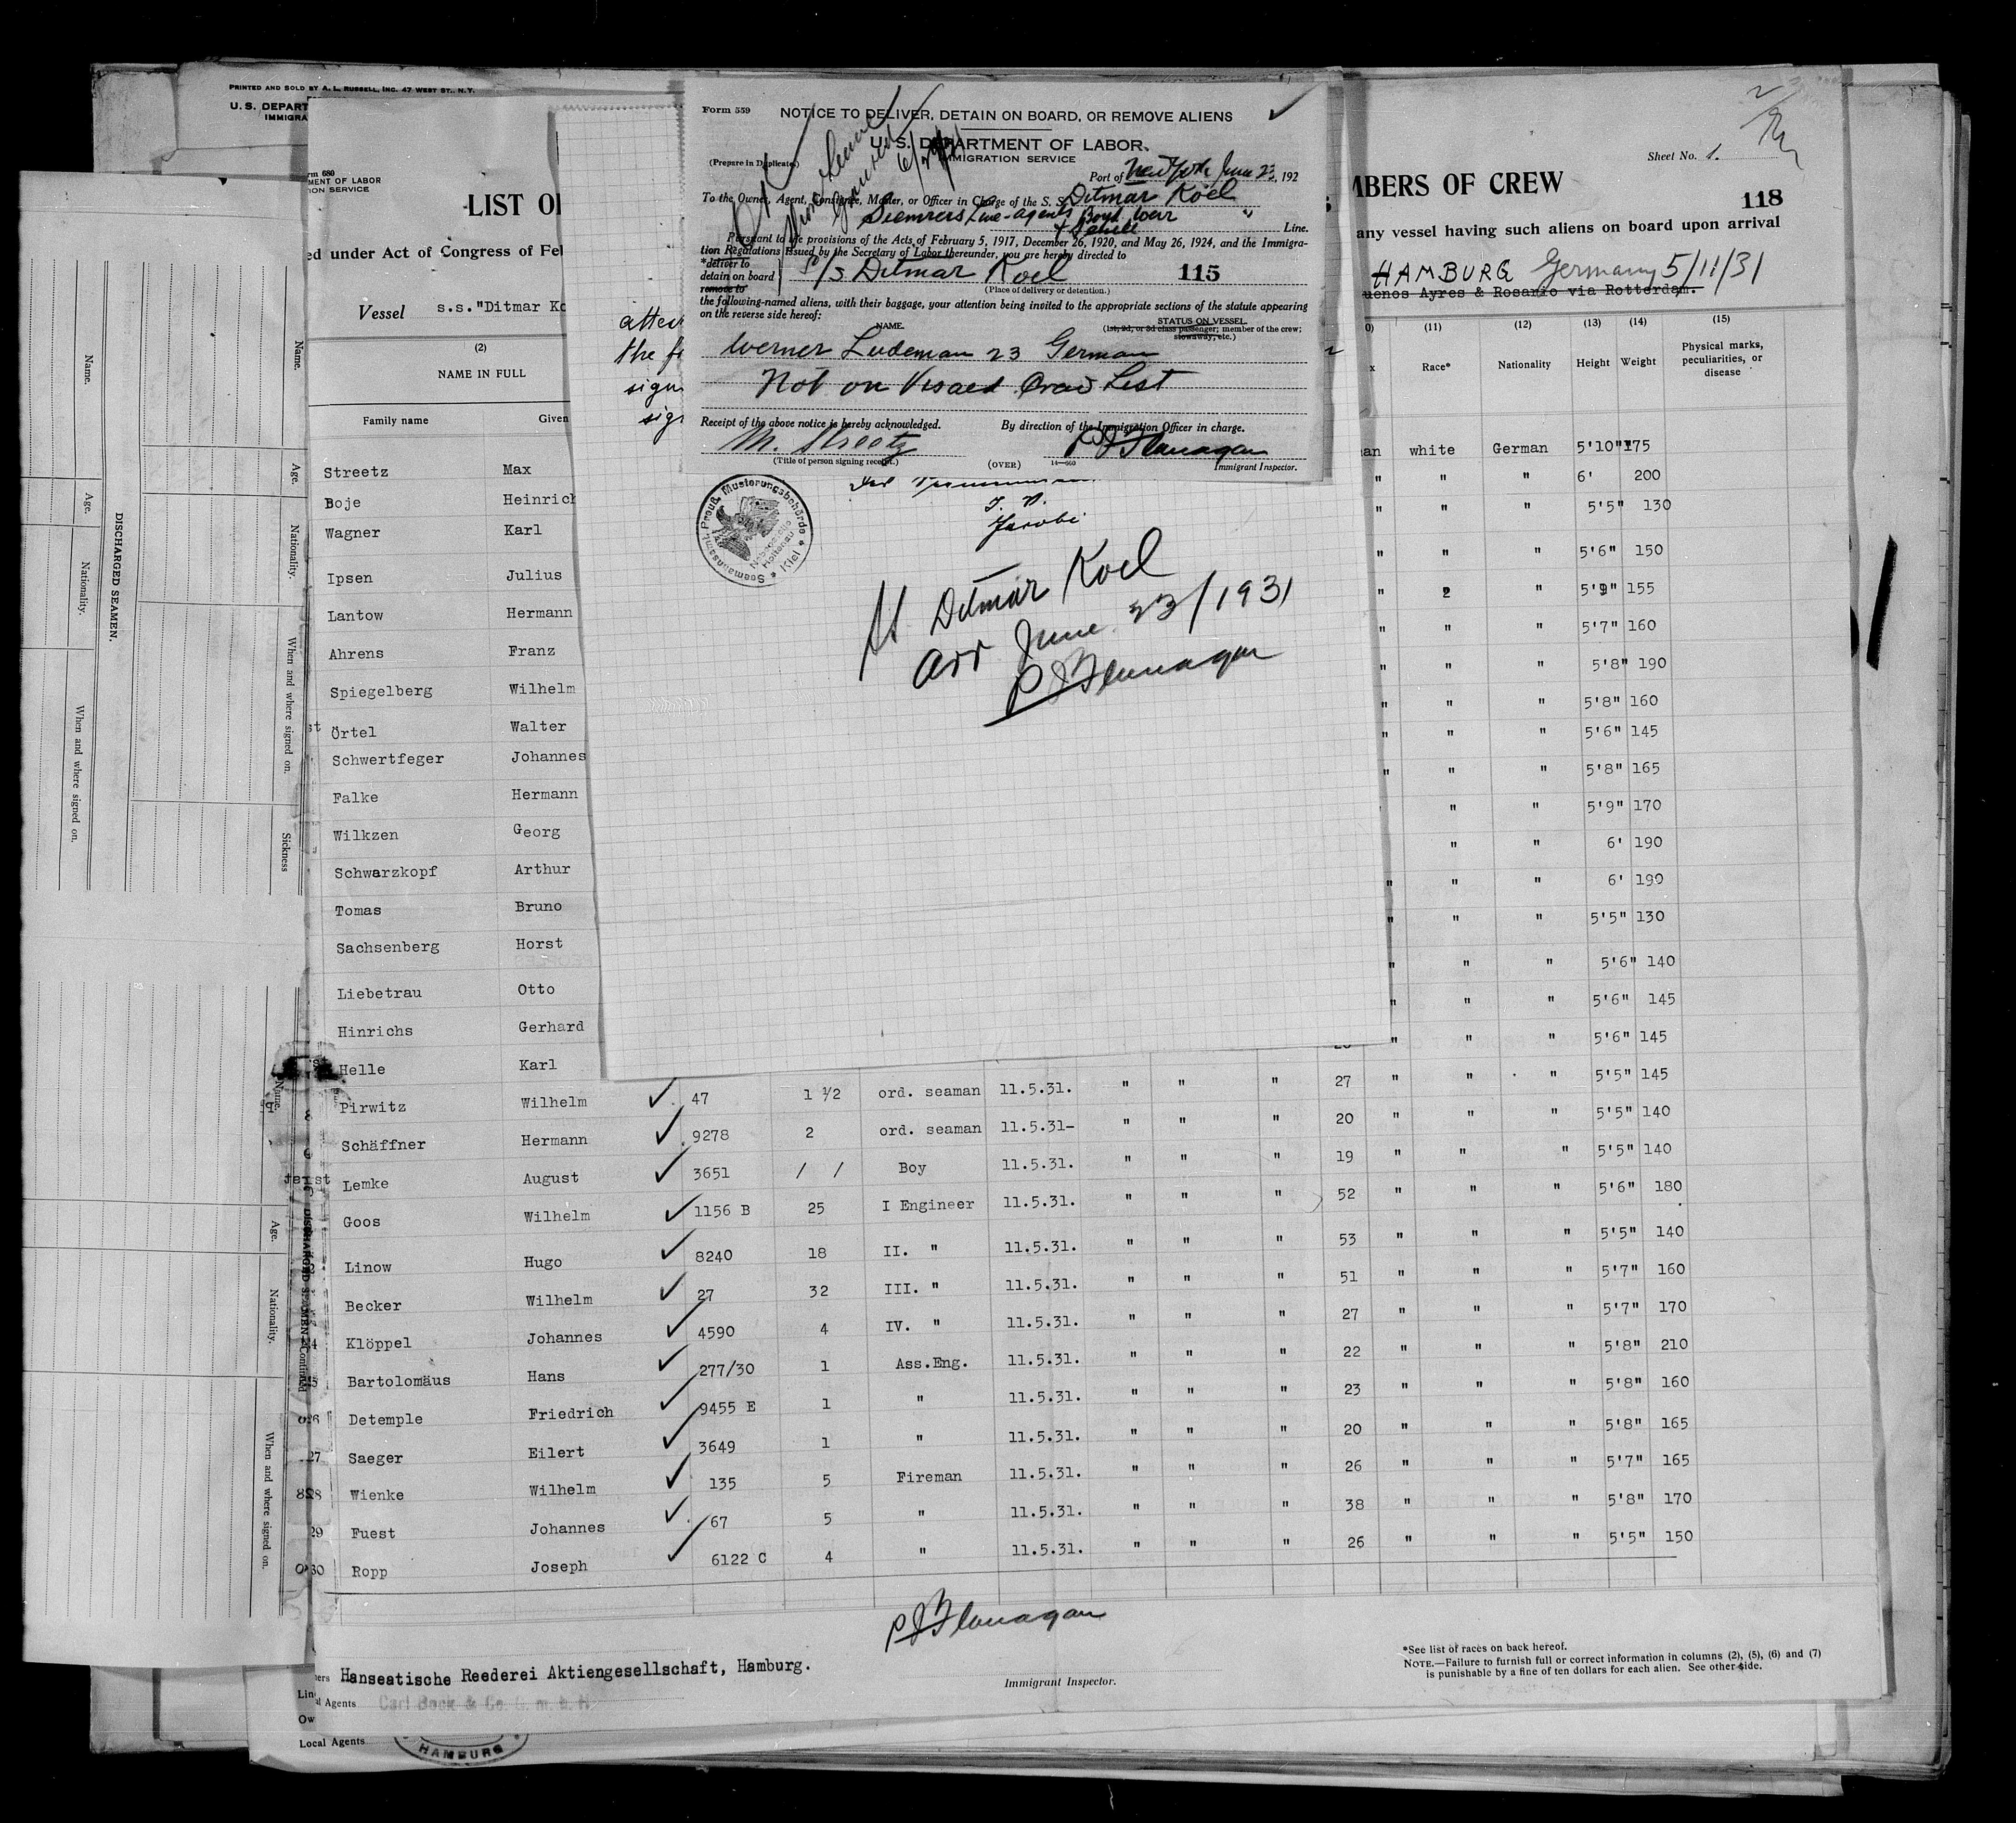 PRINTED AND SOLD BY A. L. RUSSELL, INC. 47 WEST ST., N.Y.
U. S. DEPART
IMMIGRA
Form 559
NOTICE TO DELIVER, DETAIN ON BOARD, OR REMOVE ALIENS
U. S. DEPARTMENT OF LABOR
IMMIGRATION SERVICE
(Prepare in Duplicate)
Port of New York June 23, 192
To the Owner, Agent, Consignee, Master, or Officer in Charge of the S. S. Ditmar Koel
Line.
Pursuant to the provisions of the Acts of February 5, 1917, December 26, 1920, and May 26, 1924, and the Immigra-
tion Regulations issued by the Secretary of Labor thereunder, you are hereby directed to
*deliver to
detain on board S/S Ditmar Koel 115
remove to
(Place of delivery or detention.)
the following-named aliens, with their baggage, your attention being invited to the appropriate sections of the statute appearing
on the reverse side hereof:
NAME.
STATUS ON VESSEL
(1st, 2d, or 3d class passenger; member of the crew;
stowaway, etc.)
Werner Ludeman 23 German
Not on Visaed Crew List
Receipt of the above notice is hereby acknowledged.
By direction of the Immigration Officer in charge.
M. Streetz
P J Flanagan
(Title of person signing receipt.)
(OVER)
14—660
Immigrant Inspector.
Seemannsamt Preuß. Musterungsbehörde
Holtenau
Kiel
J. V.
Jacobi
Ditmar Koel
arr June 23/1931
P J Flanagan
rm 680
MENT OF LABOR
ION SERVICE
LIST O
MBERS OF CREW
Sheet No. 1.
118
ed under Act of Congress of Fe
any vessel having such aliens on board upon arrival
HAMBURG Germany 5/11/31
uenos Ayres & Rosario via Rotterdam.
Vessel s.s."Ditmar Ko
(2)
NAME IN FULL
Family name
Given
(11)
Race*
(12)
Nationality
(13)
Height
(14)
Weight
(15)
Physical marks,
peculiarities, or
disease
Streetz Max an white German 5'10" 175
Boje Heinrich " " " 6' 200
Wagner Karl " " " 5'5" 130
Ipsen Julius " " " 5'6" 150
Lantow Hermann " " 5'9" 155
Ahrens Franz " " " 5'7" 160
Spiegelberg Wilhelm " " " 5'8" 190
Örtel Walter " " " 5'8" 160
Schwertfeger Johannes " " " 5'6" 145
Falke Hermann " " " 5'8" 165
Wilkzen Georg " " 5'9" 170
Schwarzkopf Arthur " " 6' 190
Tomas Bruno " " " 6' 190
Sachsenberg Horst " " " 5'5" 130
Liebetrau Otto " " " 5'6" 140
Hinrichs Gerhard " " " 5'6" 145
Helle Karl " " " 5'6" 145
Pirwitz Wilhelm 47 1 1/2 ord. seaman 11.5.31. " " " 27 " " " 5'5" 145
Schäffner Hermann 9278 2 ord. seaman 11.5.31- " " " 20 " " " 5'5" 140
Lemke August 3651 / / Boy 11.5.31. " " " 19 " " " 5'5" 140
Goos Wilhelm 1156 B 25 I Engineer 11.5.31. " " " 52 " " " 5'6" 180
Linow Hugo 8240 18 II. " 11.5.31. " " " 53 " " " 5'5" 140
Becker Wilhelm 27 32 III. " 11.5.31. " " " 51 " " " 5'7" 160
Klöppel Johannes 4590 4 IV. " 11.5.31. " " " 27 " " " 5'7" 170
Bartolomäus Hans 277/30 1 Ass.Eng. 11.5.31. " " " 22 " " " 5'8" 210
Detemple Friedrich 9455 E 1 " 11.5.31. " " " 23 " " " 5'8" 160
27 Saeger Eilert 3649 1 " 11.5.31. " " " 20 " " " 5'8" 165
28 Wienke Wilhelm 135 5 Fireman 11.5.31. " " " 26 " " " 5'7" 165
29 Fuest Johannes 67 5 " 11.5.31. " " " 38 " " " 5'8" 170
30 Ropp Joseph 6122 C 4 " 11.5.31. " " " 26 " " " 5'5" 150
P J Flanagan
Immigrant Inspector.
*See list of races on back hereof.
NOTE.—Failure to furnish full or correct information in columns (2), (5), (6) and (7)
is punishable by a fine of ten dollars for each alien. See other side.
ners Hanseatische Reederei Aktiengesellschaft, Hamburg.
l Agents Carl Bock & Co. G. m. b. H
Local Agents
HAMBURG
Name.
Age.
Nationality.
When and where signed on.
DISCHARGED SEAMEN.
Name.
Age.
Nationality.
When and where signed on.
Sickness
Name.
Age.
Nationality.
When and where signed on.
DISCHARGED SEAMEN—Continued